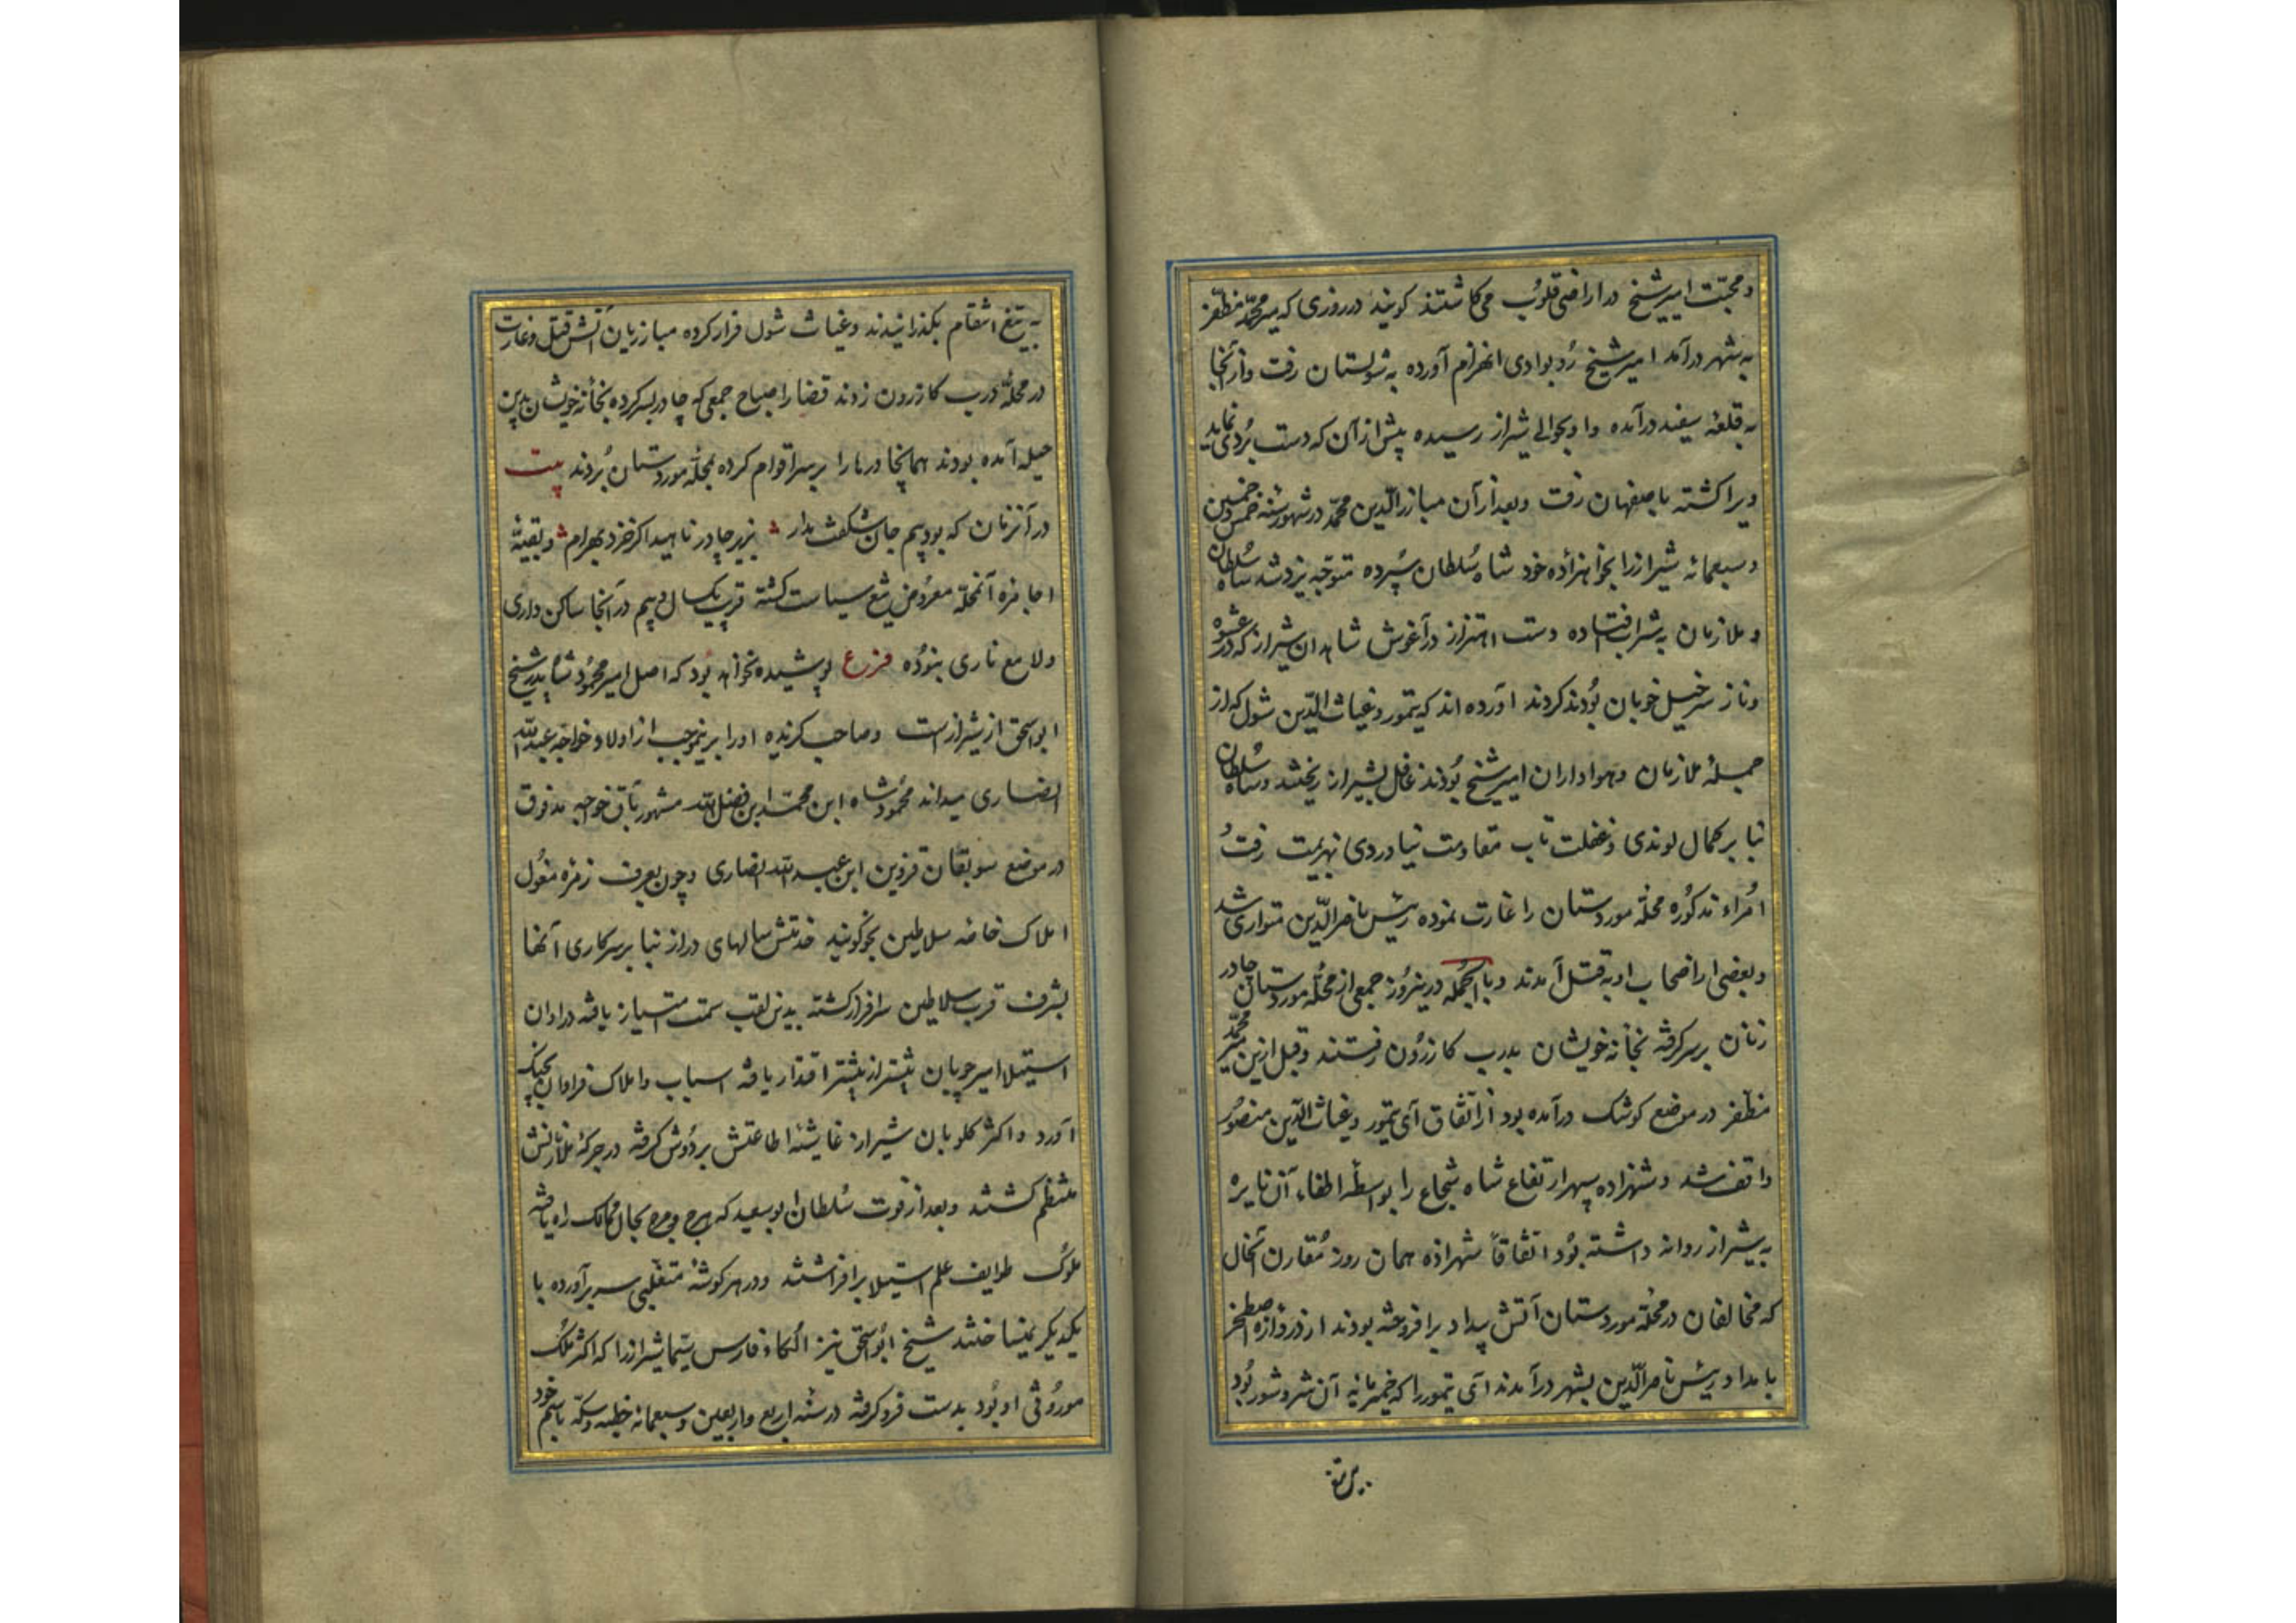 و محبّت امیر شیخ در اراضی قلوب می‌کاشتند کویند در روزی که میر محمّد مظفّر
به شهر درآمد امیر شیخ رو بوادی انهزام آورده به شولستان رفت و از آنجا
به قلعهٔ سفید درآمده و او بحوالی شیراز رسیده پیش از آن که دست بردی نماید
ویرا کشته باصفهان رفت و بعد از آن مبارز الدّین محمّد در شهور سنه خمس و خمسین
و سبعمائه شیراز را بخواهرزاده خود شاه سُلطان سپرده متوجّه یزد شد شاه سُلطان
و ملازمان به شراب افتاده دست اهتزاز در آغوش شاهدان شیراز که در عشوه
و ناز سرخیل خوبان بُودند کردند آورده اند که تیمور و غیاث الدّین شول که از
جملهٔ ملازمان و هواداران امیر شیخ بُودند غافل بشیراز ریختند و شاه سُلطان
بنا بر کمال لوندی و غفلت تاب مقاومت نیاوردی بهزیمت رفت
اُمراء مذکوره محلّه موردستان را غارت نموده رئیس ناصر الدّین متواری شد
و بعضی از اصحاب او به قتل آمدند و بالجُمله درینروز جمعی از محلّه موردستان چادر
زنان بر سر کرفته بخانه خویشان بدرب کازرُون رفتند و قبل ازین میر محمّد
مظفّر در موضع کوشک درآمده بود از اتّفاق آی تیمور و غیاث الدّین منصُور
واقف شد و شهزاده سپهر ارتفاع شاه شجاع را بواسطهٔ اطفاء آن نایره
به شیراز روانه داشته بُود اتّفاقاً شهزاده همان روز مُقارن آنحال
که مخالفان در محلّهٔ موردستان آتش بیداد برافروخته بودند از دروازه اصطخر
بامداد رئیس ناصر الدّین بشهر درآمدند آی تیمور را که خمیرمایه آن شر و شور بُود
به تیغ انتقام بکذرانیدند و غیاث شول فرار کرده مبارزیان آتش قتل و غارت
در محلّهٔ درب کازرون زدند قضا را صباح جمعی که چادر بسر کرده بخانه خویشان بدین
حیله آمده بودند همانجا درها را بر سر اقوام کرده بمحلّه موردستان بُردند بیت
در آنزمان که بود بیم جان شکفت مدار بزیر چادر ناهید اکر خزد بهرام و بقیّهٔ
آنمحلّه معرُوض تیغ سیاست کشته قریب یک سال و نیم در آنجا ساکن داری
و لامع ناری نبُوده فرع پوشیده نخواهد بود که اصل امیر محمُود شاه پدر شیخ
ابو اسحق از شیراز است و صاحب کزیده او را برینموجب از اولاد خواجه عبد الله
انصاری میداند محمُود شاه ابن محمّد ابن فضل الله مشهور خوجه مدفوق
در موضع قزوین ابن عبد الله انصاری و چون بعرف زمره مغُول
املاک خاصّه سلاطین را کویند خدمتش سالهای دراز بنا بر سرکاری آنها
بشرف قرب سلاطین سرافراز کشته بدین لقب سمت امتیاز یافته در اوان
استیلا امیر چوپان بیشتر از پیشتر اقتدار یافته اسباب و املاک فراوان بچنک
آورد و اکثر کلویان شیراز غاشیهٔ اطاعتش بر دُوش کرفته در جرکهٔ ملازمانش
منتظم کشتند و بعد از فوت سُلطان ابو سعید که هرج و مرج بحال ممالک راه یافته
ملوک طوایف علم استیلا برافراشتند و در هر کوشهٔ متغلّبی سر برآورده با
یکدیکر نمیساختند شیخ ابو اسحق نیز الکاء فارس سیّما شیراز را که اکثر ملک
مورُوثی او بُود بدست فروکرفته در سنه اربع و اربعین و سبعمائه خطبه و سکّه باسم خود